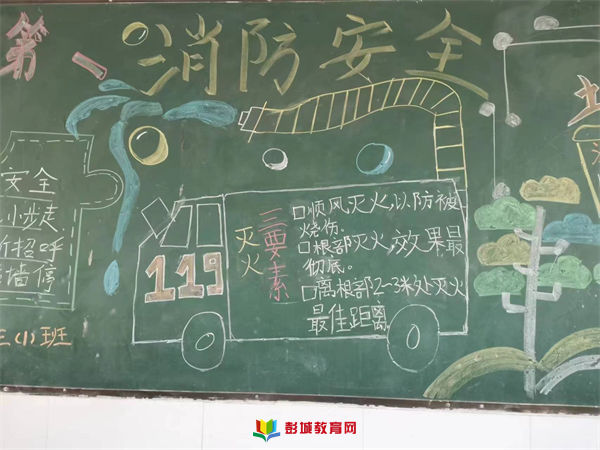 第一
消防安全
安全
小步走
招呼
墙停
(1)班
119
灭火
三要素
□顺风灭火以防被
烧伤.
□根部灭火,效果最
彻底。
□离根部2~3米处灭火
最佳距离
彭城教育网